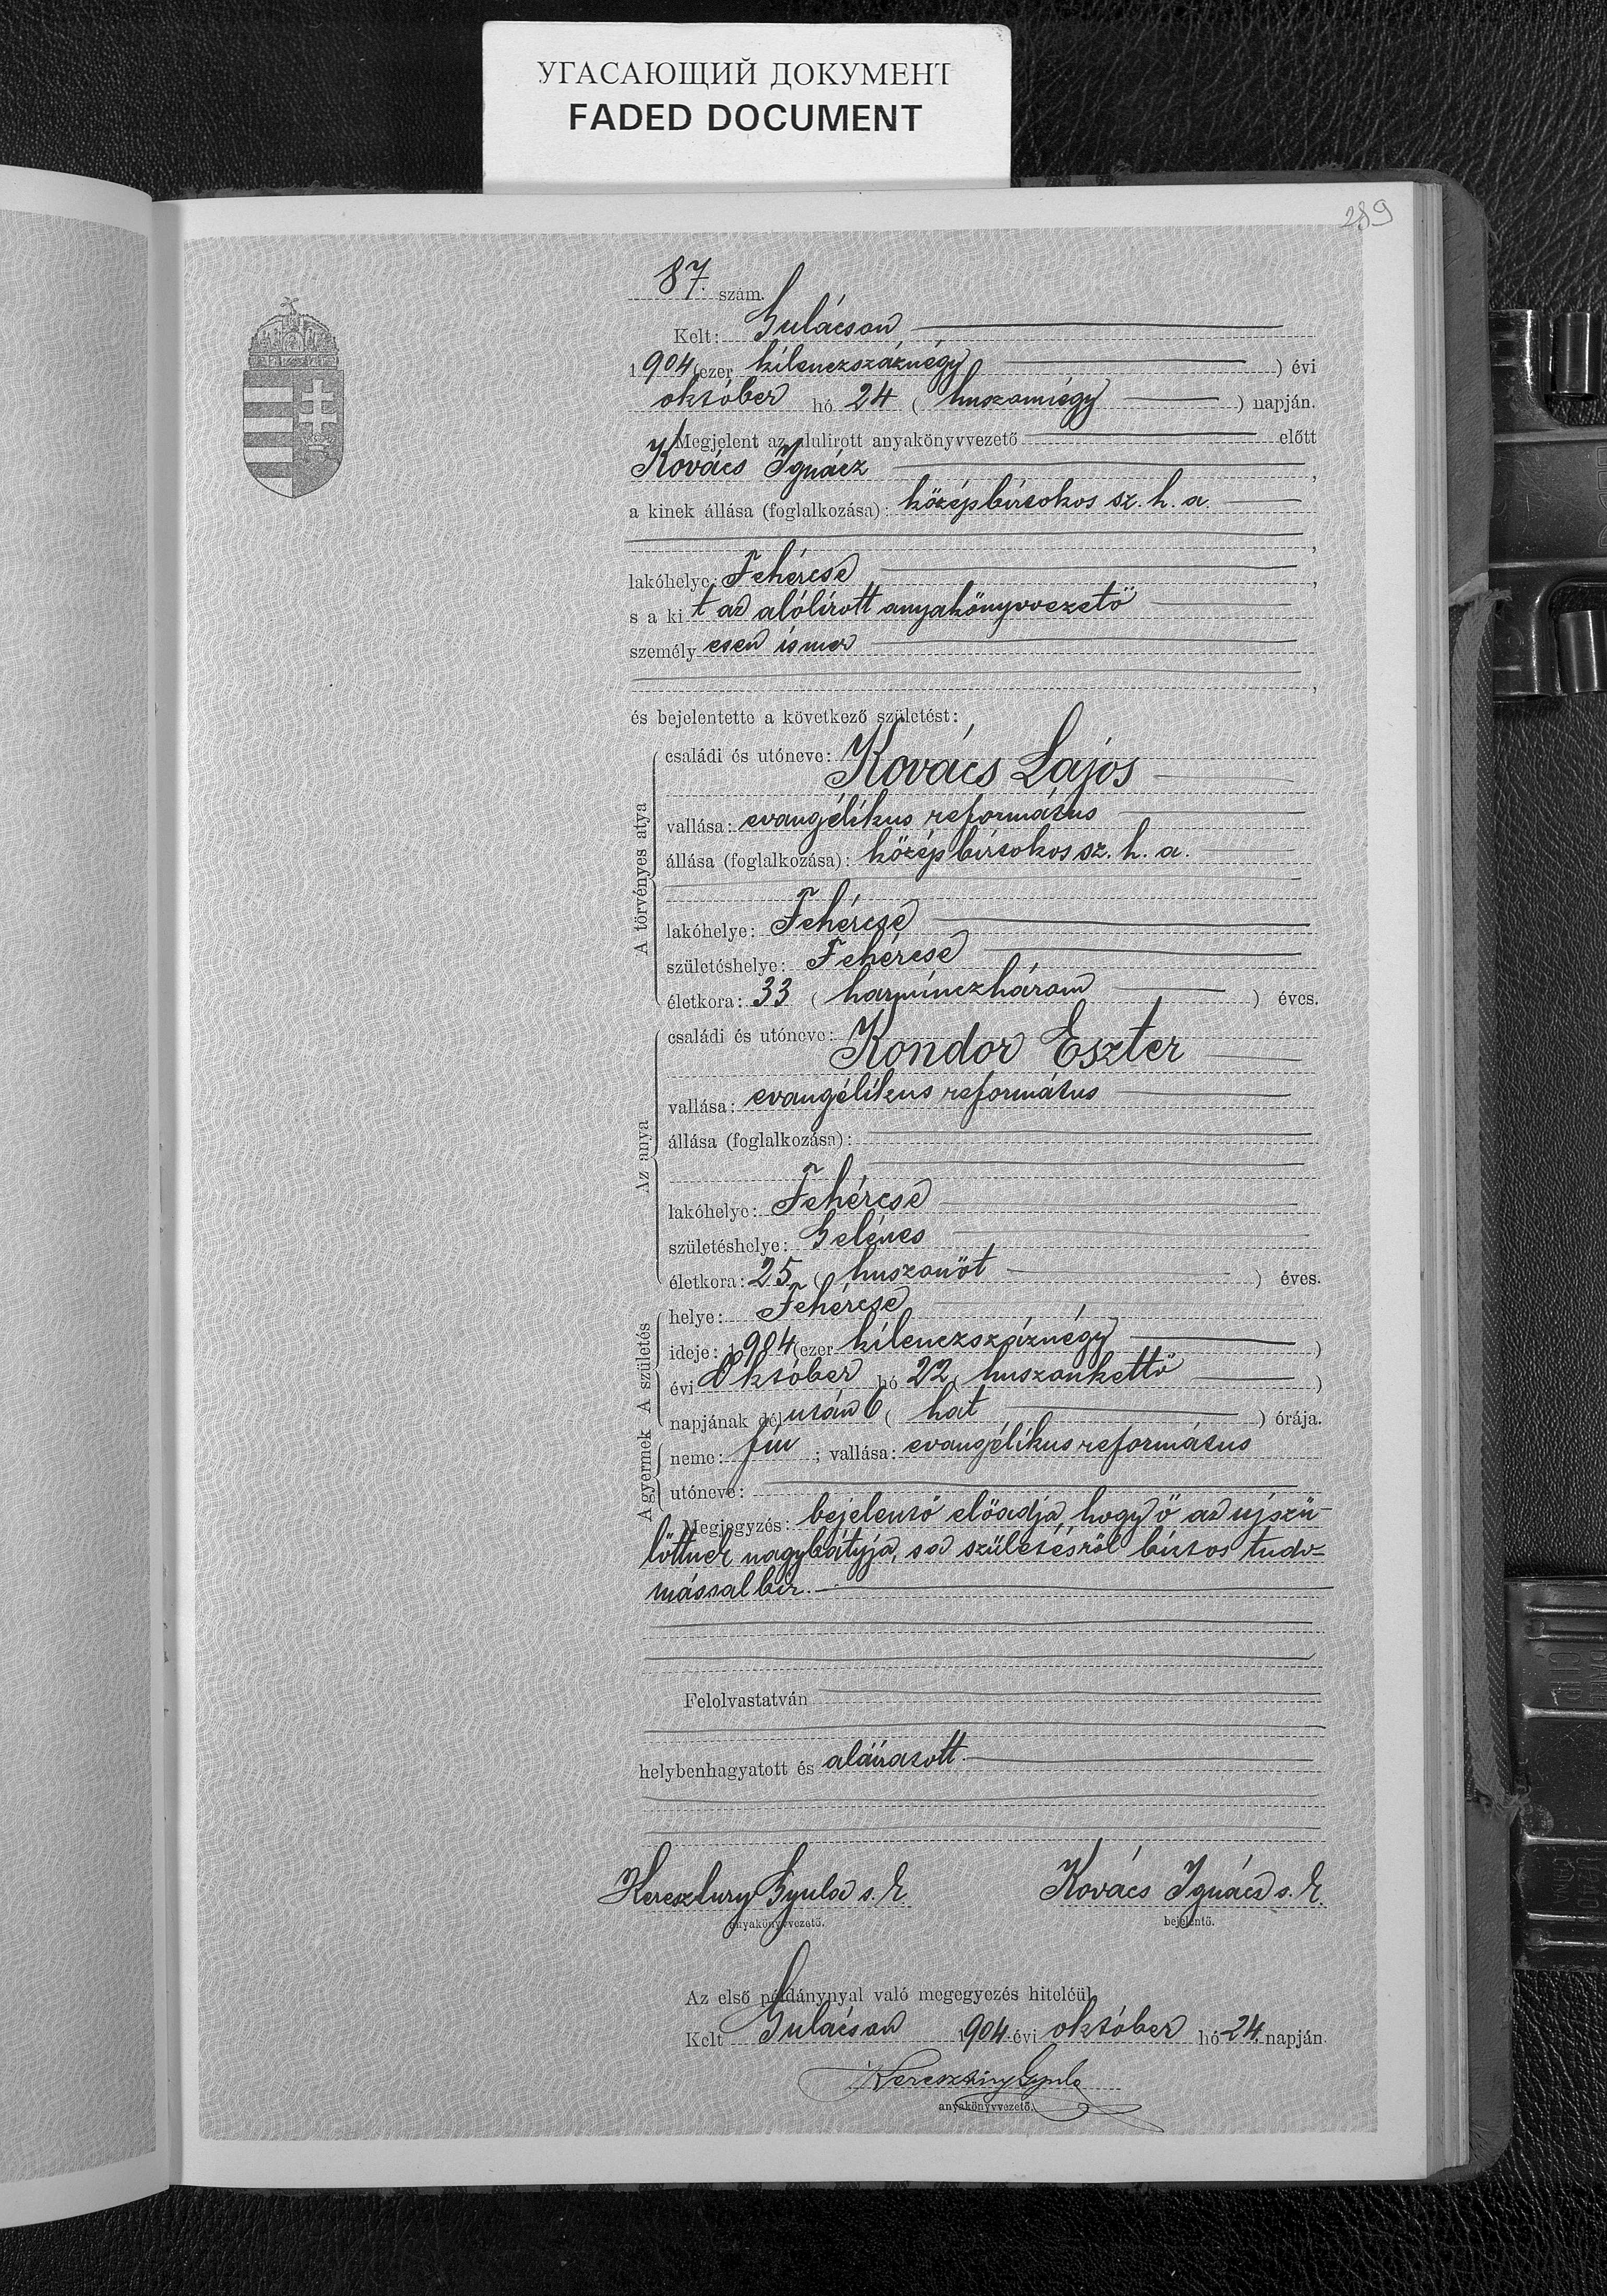 УГАСАЮЩИЙ ДОКУМЕНТ
FADED DOCUMENT
289
87. szám.
Kelt: Gulácson
1904 (ezer kilenczszáznégy) évi
október hó 24 (huszonnégy) napján.
Megjelent az alulirott anyakönyvvezető előtt
Kovács Ignácz,
a kinek állása (foglalkozása): középbirtokos sz. h. a.
lakóhelye: Fehércse,
s a kit az alólírott anyakönyvvezető
személyesen ismer,
és bejelentette a következő születést:
A törvényes atya
családi és utóneve: Kovács Lajos
vallása: evangélikus református
állása (foglalkozása): középbirtokos sz. h. a.
lakóhelye: Fehércse
születéshelye: Fehércse
életkora: 33 (harminczhárom) éves.
Az anya
családi és utóneve: Kondor Eszter
vallása: evangélikus református
állása (foglalkozása):
lakóhelye: Fehércse
születéshelye: Gelénes
életkora: 25 (huszonöt) éves.
A születés
helye: Fehércse
ideje: 1904 (ezer kilenczszáznégy)
évi Október hó 22 (huszonkettő)
napjának délután 6 (hat) órája.
A gyermek
neme: fiu; vallása: evangélikus református
utóneve:
Megjegyzés: bejelentő előadja, hogy ő az ujszü-
löttnek nagybátyja, s a születésről biztos tudo-
mással bir.
Felolvastatván
helybenhagyatott és aláíratott.
Keresztury Gyula s. k. Kovács Ignácz s. k.
anyakönyvvezető. bejelentő.
Az első példánynyal való megegyezés hiteléül
Kelt Gulácson 1904 évi október hó 24. napján.
Keresztury Gyula
anyakönyvvezető.